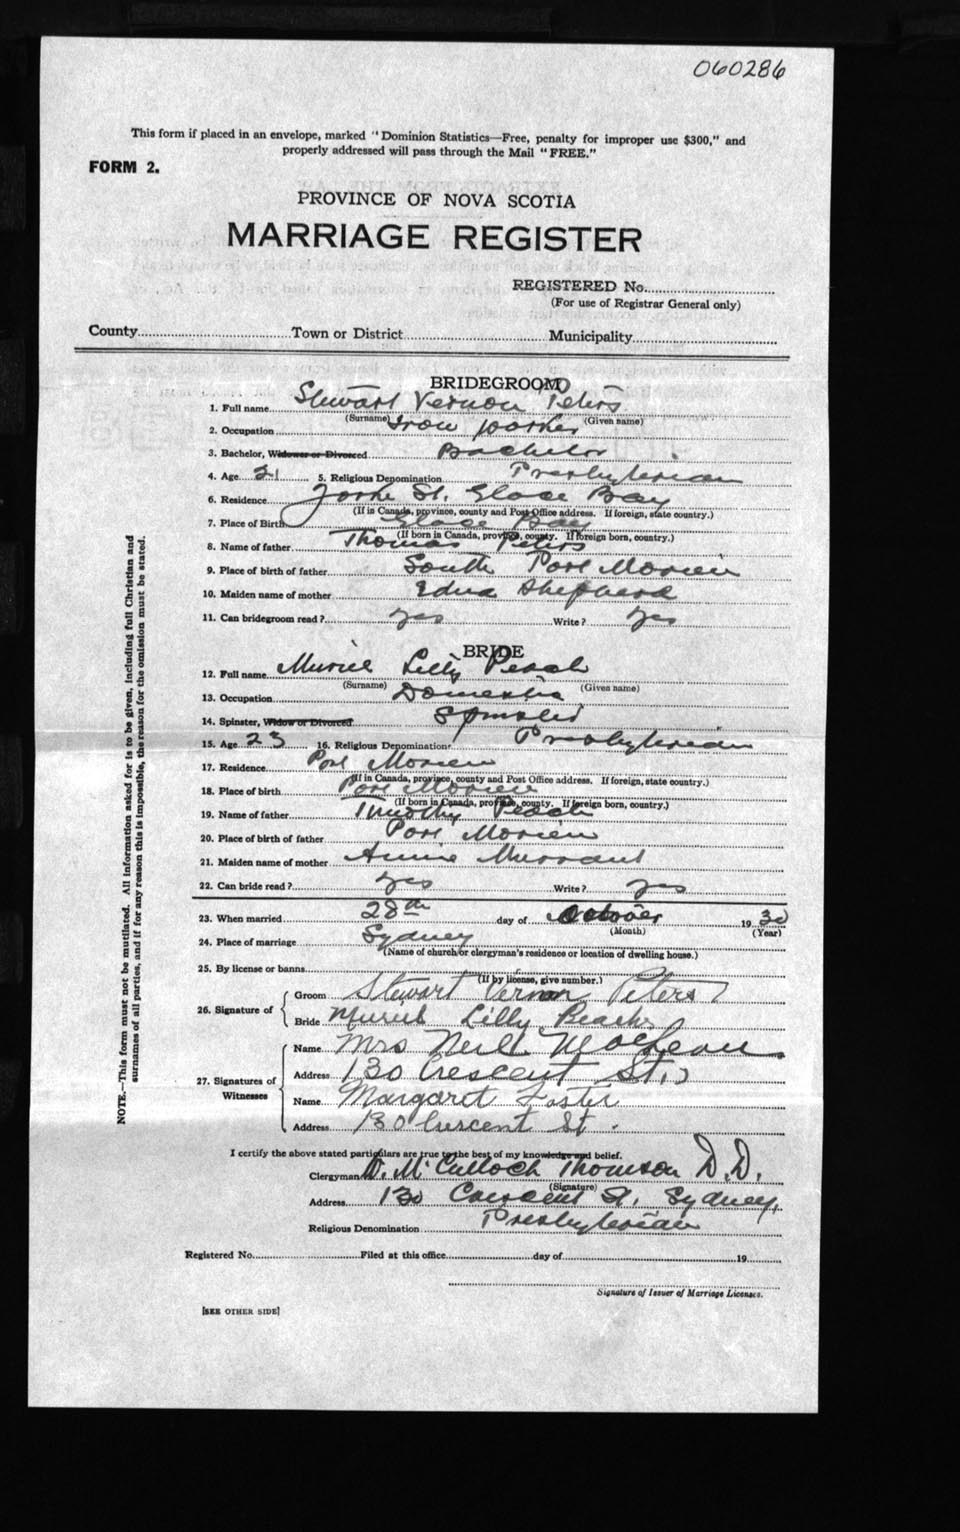 060286
This form if placed in an envelope, marked "Dominion Statistics—Free, penalty for improper use $300," and
properly addressed will pass through the Mail "FREE."
FORM 2.
PROVINCE OF NOVA SCOTIA
MARRIAGE REGISTER
REGISTERED No.
(For use of Registrar General only)
County Town or District Municipality
BRIDEGROOM
1. Full name Stewart Vernon Peters
(Surname) (Given name)
2. Occupation Iron worker
3. Bachelor, Widower or Divorced Bachelor
4. Age 21 5. Religious Denomination Presbyterian
6. Residence Yorke St. Glace Bay
(If in Canada, province, county and Post Office address. If foreign, state country.)
7. Place of Birth Glace Bay
(If born in Canada, province, county. If foreign born, country.)
8. Name of father Thomas Peters
9. Place of birth of father South Port Morien
10. Maiden name of mother Edna Shepherd
11. Can bridegroom read? yes Write? yes
BRIDE
12. Full name Muriel Lilly Peach
(Surname) (Given name)
13. Occupation Domestic
14. Spinster, Widow or Divorced Spinster
15. Age 23 16. Religious Denomination Presbyterian
17. Residence Port Morien
(If in Canada, province, county and Post Office address. If foreign, state country.)
18. Place of birth Port Morien
(If born in Canada, province, county. If foreign born, country.)
19. Name of father Timothy Peach
20. Place of birth of father Port Morien
21. Maiden name of mother Annie Murrant
22. Can bride read? yes Write? yes
23. When married 28th day of October 1930
(Month) (Year)
24. Place of marriage Sydney
(Name of church or clergyman's residence or location of dwelling house.)
25. By license or banns
(If by license, give number.)
26. Signature of
Groom Stewart Vernon Peters
Bride Muriel Lilly Peach
27. Signatures of Witnesses
Name Mrs Neill McLean
Address 130 Crescent St.
Name Margaret Foster
Address 130 Crescent St.
I certify the above stated particulars are true to the best of my knowledge and belief.
Clergyman D. McCulloch Thomson D.D.
(Signature)
Address 130 Crescent St. Sydney,
Religious Denomination Presbyterian
Registered No. Filed at this office day of 19
Signature of Issuer of Marriage Licenses.
[SEE OTHER SIDE]
NOTE.—This form must not be mutilated. All information asked for is to be given, including full Christian and
surnames of all parties, and if for any reason this is impossible, the reason for the omission must be stated.